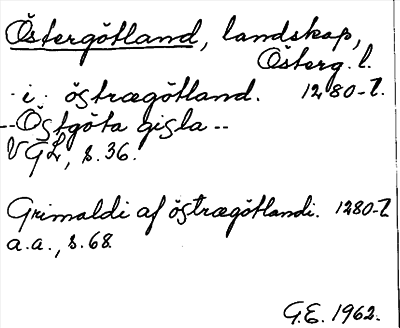 Östergötland, landskap,
Österg. l.
·i· östrægötland. 1280-t.
--Östgöta gisla--
VGL, s. 36.
Grimaldi af östrægötlandi. 1280-t
a.a., s. 68.
G.E. 1962.